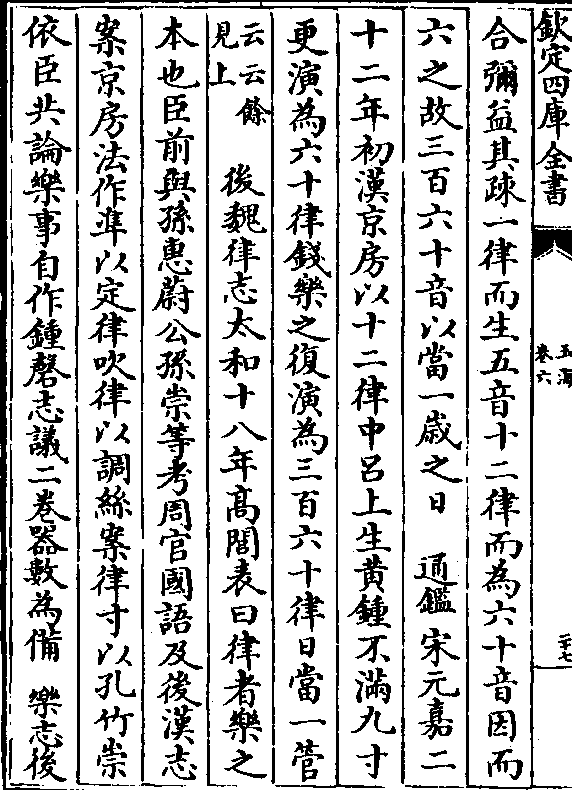 欽定四庫全書
玉海
卷六
二十七
合彌益其疎一律而生五音十二律而為六十音因而
六之故三百六十音以當一歲之日　通鑑宋元嘉二
十二年初漢京房以十二律中呂上生黃鍾不滿九寸
更演為六十律錢樂之復演為三百六十律日當一管
云云餘
見上　後魏律志太和十八年髙閭表曰律者樂之
本也臣前與孫惠蔚公孫崇等考周官國語及後漢志
案京房法作準以定律吹律以調絲案律寸以孔竹崇
依臣共論樂事自作鍾磬志議二卷器數為備　樂志後